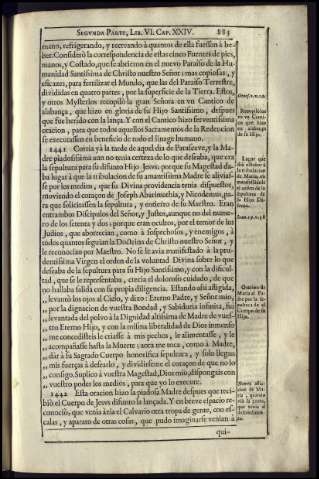 SEGVNDA PARTE, LIB. VI. CAP. XXIV. 885
eterno, refrigerando, y recreando à quantos de ella fuessen à be-
ber. Consideró la correspondencia de estas cinco Fuentes de pies,
manos, y Costado, que se abrieron en el nuevo Paraiso de la Hu-
manidad Santissima de Christo nuestro Señor mas copiosas, y
eficazes, para fertilizar el Mundo, que las del Paraiso Terrestre,
divididas en quatro partes, por la superficie de la Tierra. Estos,
y otros Mysterios recopiló la gran Señora en vn Cantico de
alabança, que hizo en gloria de su Hijo Santissimo, despues
que fue herido con la lança. Y con el Cantico hizo ferventissima
oracion, para que todos aquellos Sacramentos de la Redencion
se executassen en beneficio de todo el linage humano.
1441 Corria yà la tarde de aquel dia de Parasceve, y la Ma-
dre piadosissima aun no tenia certeza de lo que deseaba, que era
la sepultura para su difunto Hijo Jesvs: porque su Magestad da-
ba lugar à que la tribulacion de su amantissima Madre se alivias-
se por los medios, que su Divina providencia tenia dispuestos,
moviendo el coraçon de Joseph Abarimathia, y Nicodemus, pa-
ra que solicitassen la sepultura, y entierro de su Maestro. Eran
entrambos Discipulos del Señor, y Justos, aunque no del nume-
ro de los setenta y dos; porque eran ocultos, por el temor de los
Judios, que aborrecian, como à sospechosos, y enemigos, à
todos quantos seguian la Doctrina de Christo nuestro Señor, y
le reconocian por Maestro. No se le avia manifestado à la pru-
dentissima Virgen el orden de la voluntad Divina sobre lo que
deseaba de la sepultura para su Hijo Santissimo, y con la dificul-
tad, que se le representaba, crecia el doloroso cuidado, de que
no hallaba salida con su propia diligencia. Estando assi afligida,
,, levantó los ojos al Cielo, y dixo: Eterno Padre, y Señor mio,
,, por la dignacion de vuestra Bondad, y Sabiduria infinita, fui
,, levantada del polvo à la Dignidad altissima de Madre de vues-
,, tro Eterno Hijo, y con la misma liberalidad de Dios inmenso
,, me concedisteis le criasse à mis pechos, le alimentasse, y le
,, acompañasse hasta la Muerte: aora me toca, como à Madre,
,, dar à su Sagrado Cuerpo honorifica sepultura, y solo llegan
,, mis fuerças à desearlo, y dividirseme el coraçon de que no lo
,, consigo. Suplico à vuestra Magestad, Dios mio, dispongais con
,, vuestro poder los medios, para que yo lo execute.
1442 Esta oracion hizo la piadosa Madre despues que reci-
bió el Cuerpo de Jesvs difunto la lançada. Y en breve espacio re-
conoció, que venia àzia el Calvario otra tropa de gente, con es-
calas, y aparato de otras cosas, que pudo imaginarse venian à
qui-
Recopilólos
en vn Canti-
co que hizo
en alabança
de su Hijo.
Lugar que
dió el Señor à
la tribulacion
de Maria, no
manifestandole
el orden de la
sepultura de
su Hijo Di-
funto.
Oracion de
Maria al Pa-
dre por la se-
pultura de el
Cuerpo de su
Hijo.